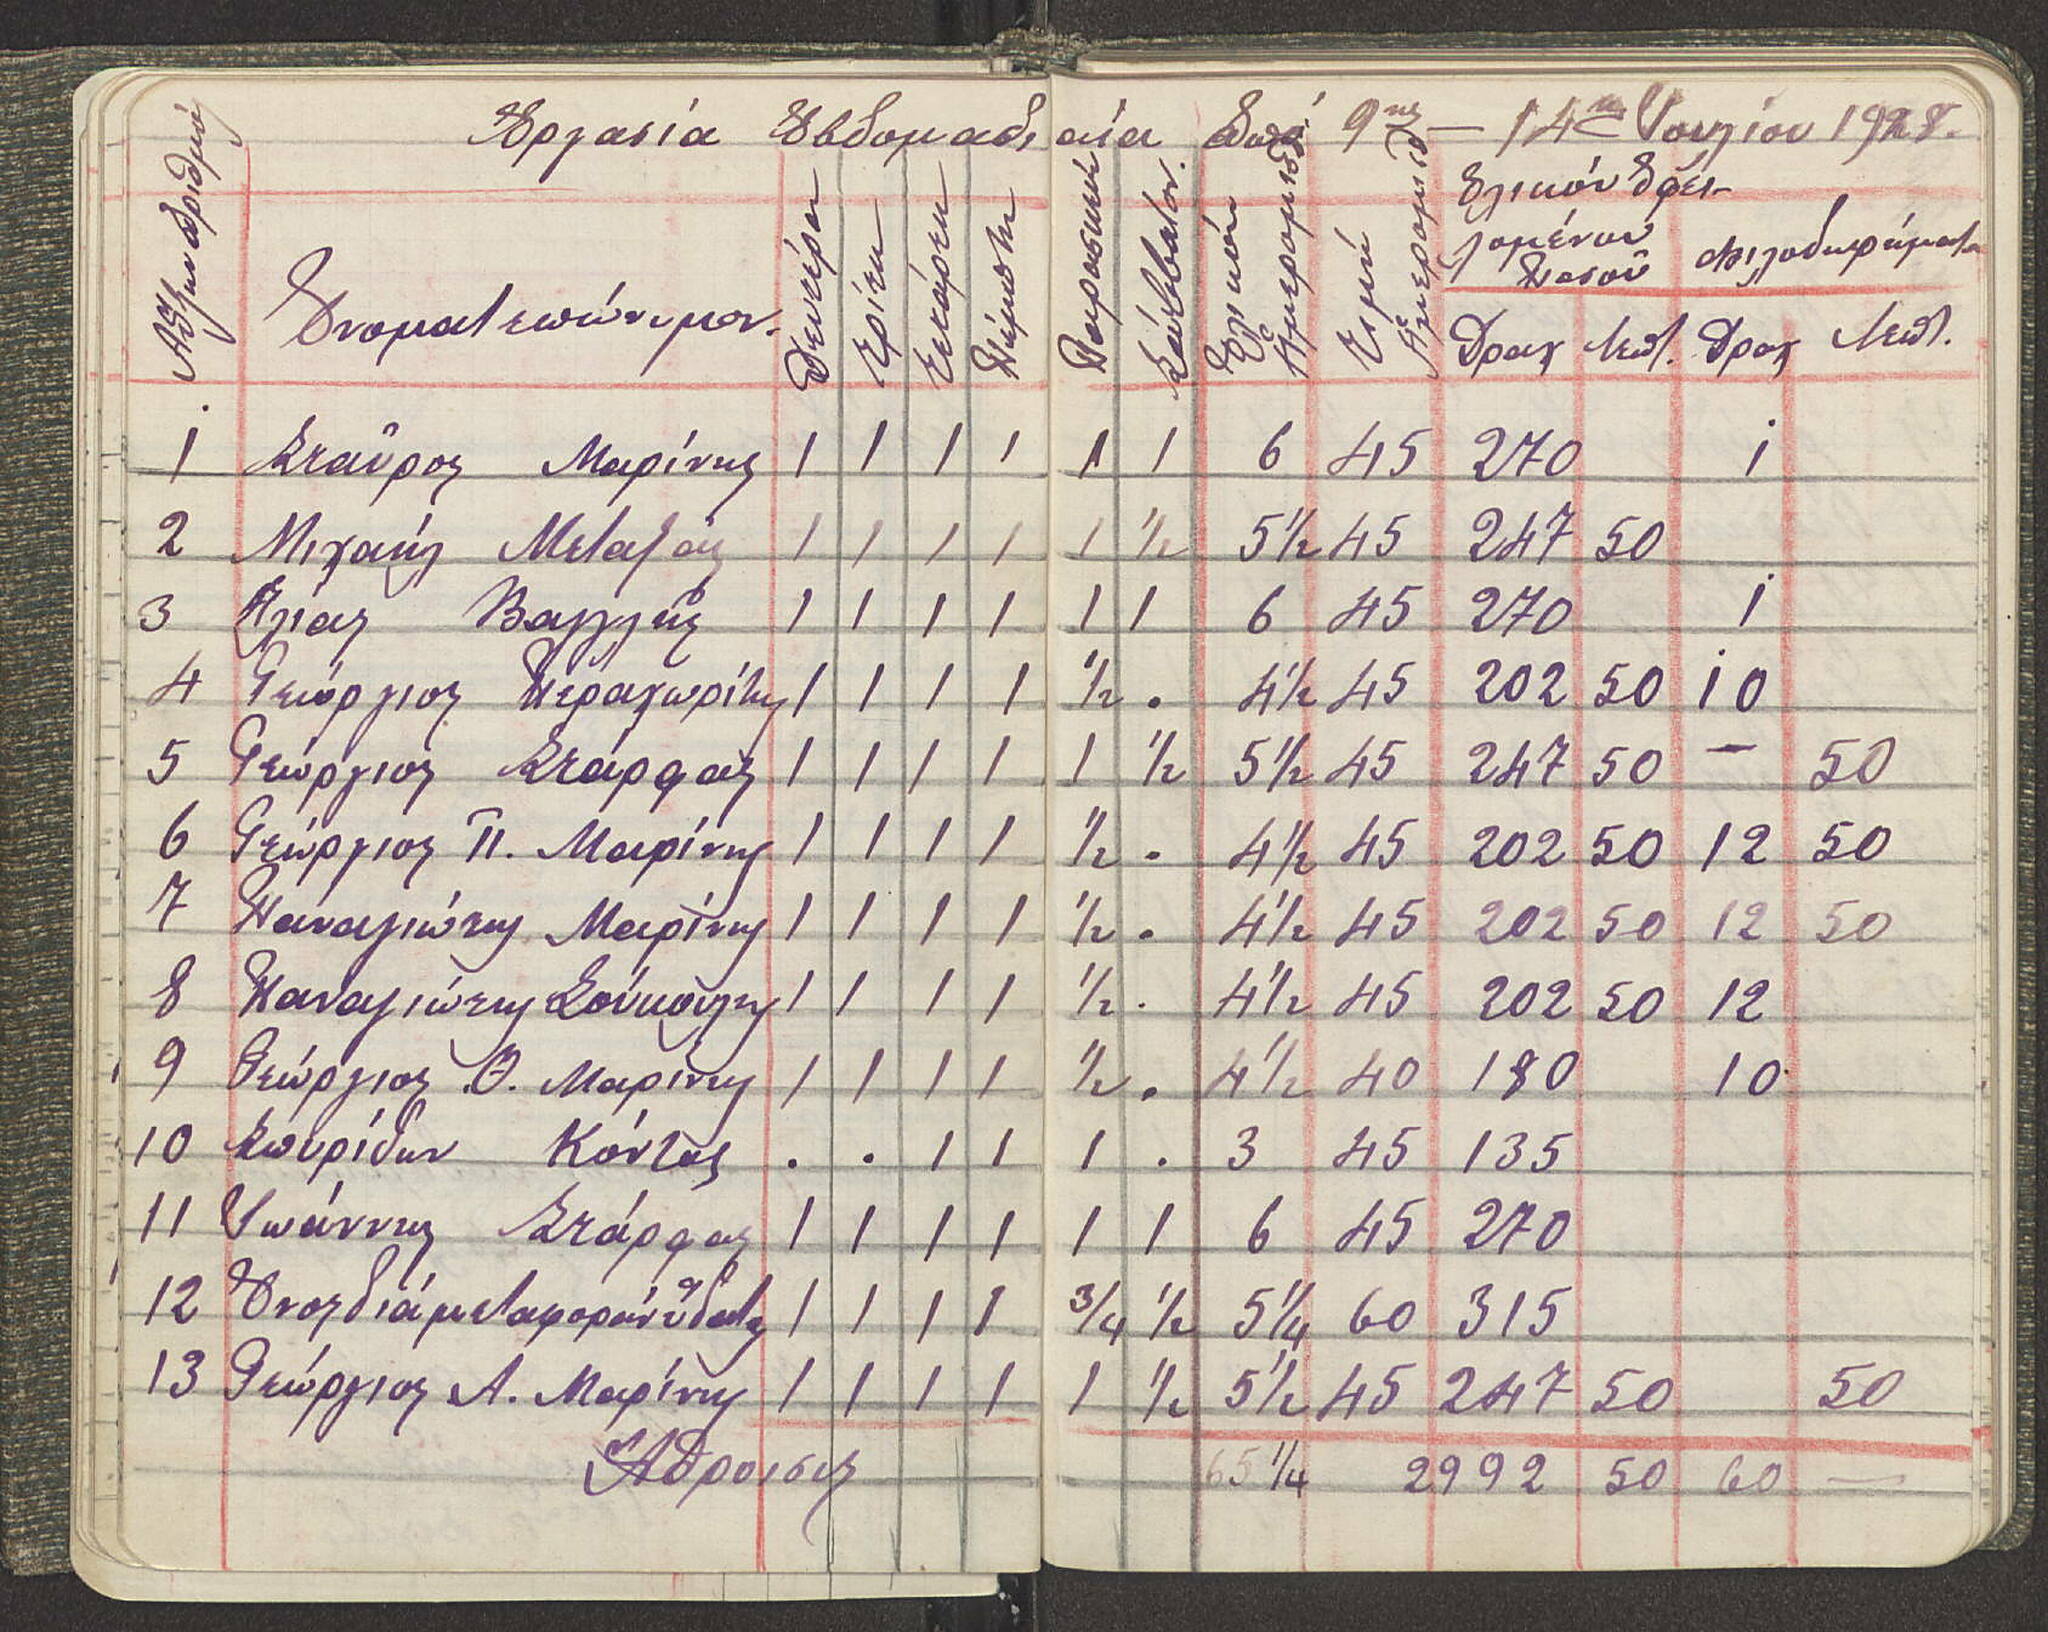 Ἐργασία Ἑβδομαδιαία ἀπό 9ης — 14ης Ἰουλίου 1928.
Αὔξων ἀριθμός Ὀνοματεπώνυμον. Δευτέρα Τρίτη Τετάρτη Πέμπτη Παρασκευή Σάββατον. Ὁλικόν Ἡμερομισθ Τιμή Ἡμερομισθ Ὁλικόν Ὀφειλομένου Ποσοῦ Φιλοδωρήματα
Δραχ Λεπτ. Δραχ Λεπτ.
1 Σταῦρος Μαρίνης 1 1 1 1 1 1 6 45 270 1
2 Μιχαήλ Μεταξᾶς 1 1 1 1 1 ½ 5½ 45 247 50
3 Ἠλίας Βαγγλῆς 1 1 1 1 1 1 6 45 270 1
4 Γεώργιος Περαχωρίτης 1 1 1 1 ½ . 4½ 45 202 50 10
5 Γεώργιος Στάρφας 1 1 1 1 1 ½ 5½ 45 247 50 — 50
6 Γεώργιος Π. Μαρίνης 1 1 1 1 ½ . 4½ 45 202 50 12 50
7 Παναγιώτης Μαρίνης 1 1 1 1 ½ . 4½ 45 202 50 12 50
8 Παναγιώτης Σούκουλης 1 1 1 1 ½ . 4½ 45 202 50 12
9 Γεώργιος Θ. Μαρίνης 1 1 1 1 ½ . 4½ 40 180 10
10 Σπυρίδων Κόντος . . 1 1 1 . 3 45 135
11 Ἰωάννης Στάρφας 1 1 1 1 1 1 6 45 270
12 Ὄνος διά μεταφοράν ὕδατος 1 1 1 1 ¾ ½ 5¼ 60 315
13 Γεώργιος Α. Μαρίνης 1 1 1 1 1 ½ 5½ 45 247 50 50
Ἄθροισις 65¼ 2992 50 60 —